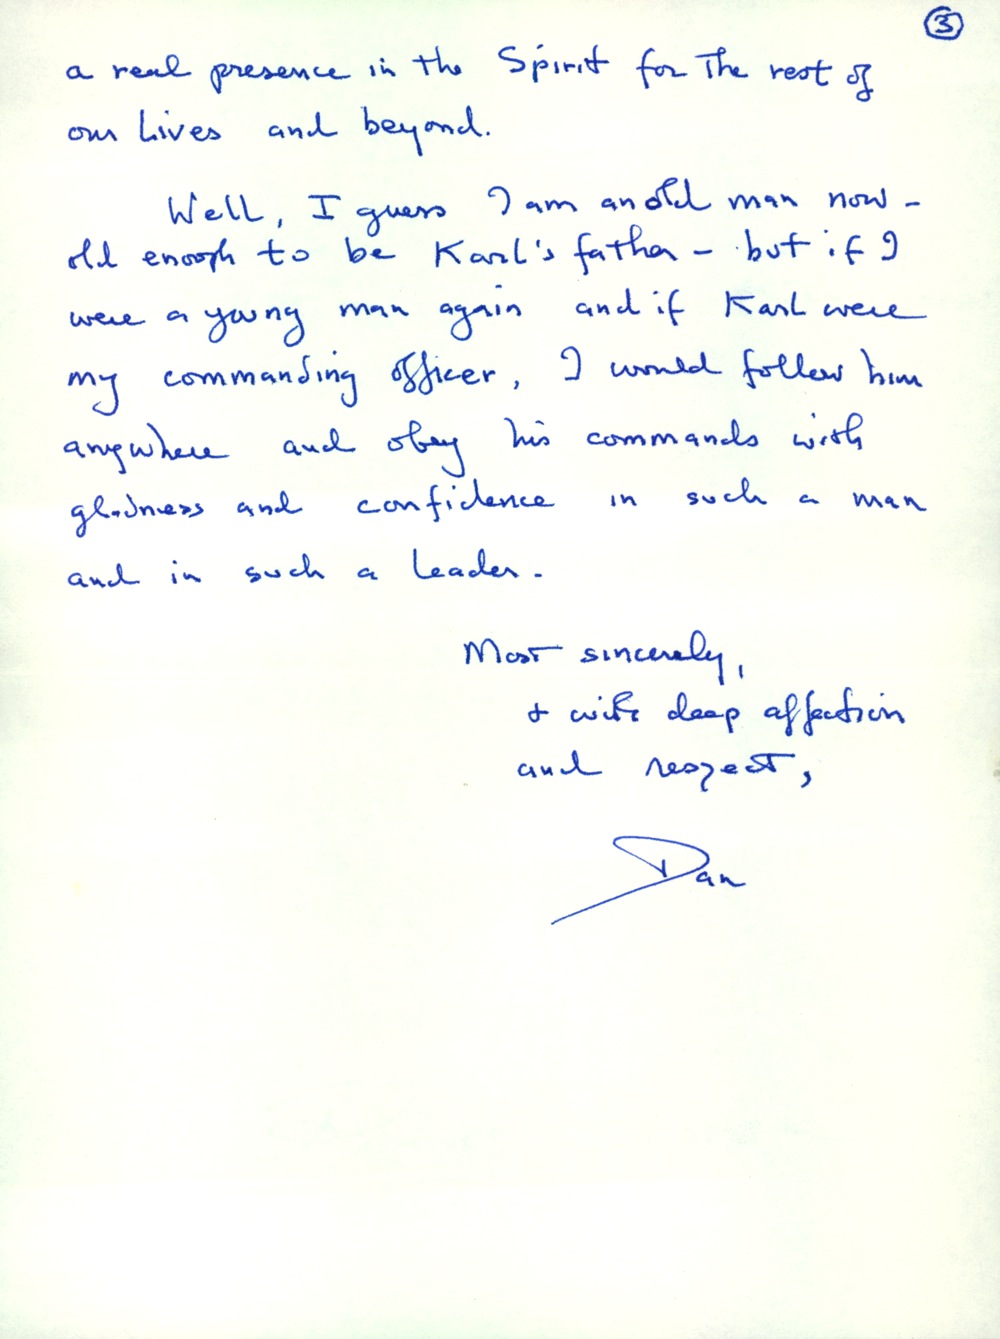 3
a real presence in the Spirit for The rest of
our Lives and beyond.
Well, I guess I am an old man now -
old enough to be Karl's father - but if I
were a young man again and if Karl were
my commanding officer, I would follow him
anywhere and obey his commands with
gladness and confidence in such a man
and in such a Leader.
Most sincerely,
+ with deep affection
and respect,
Dan